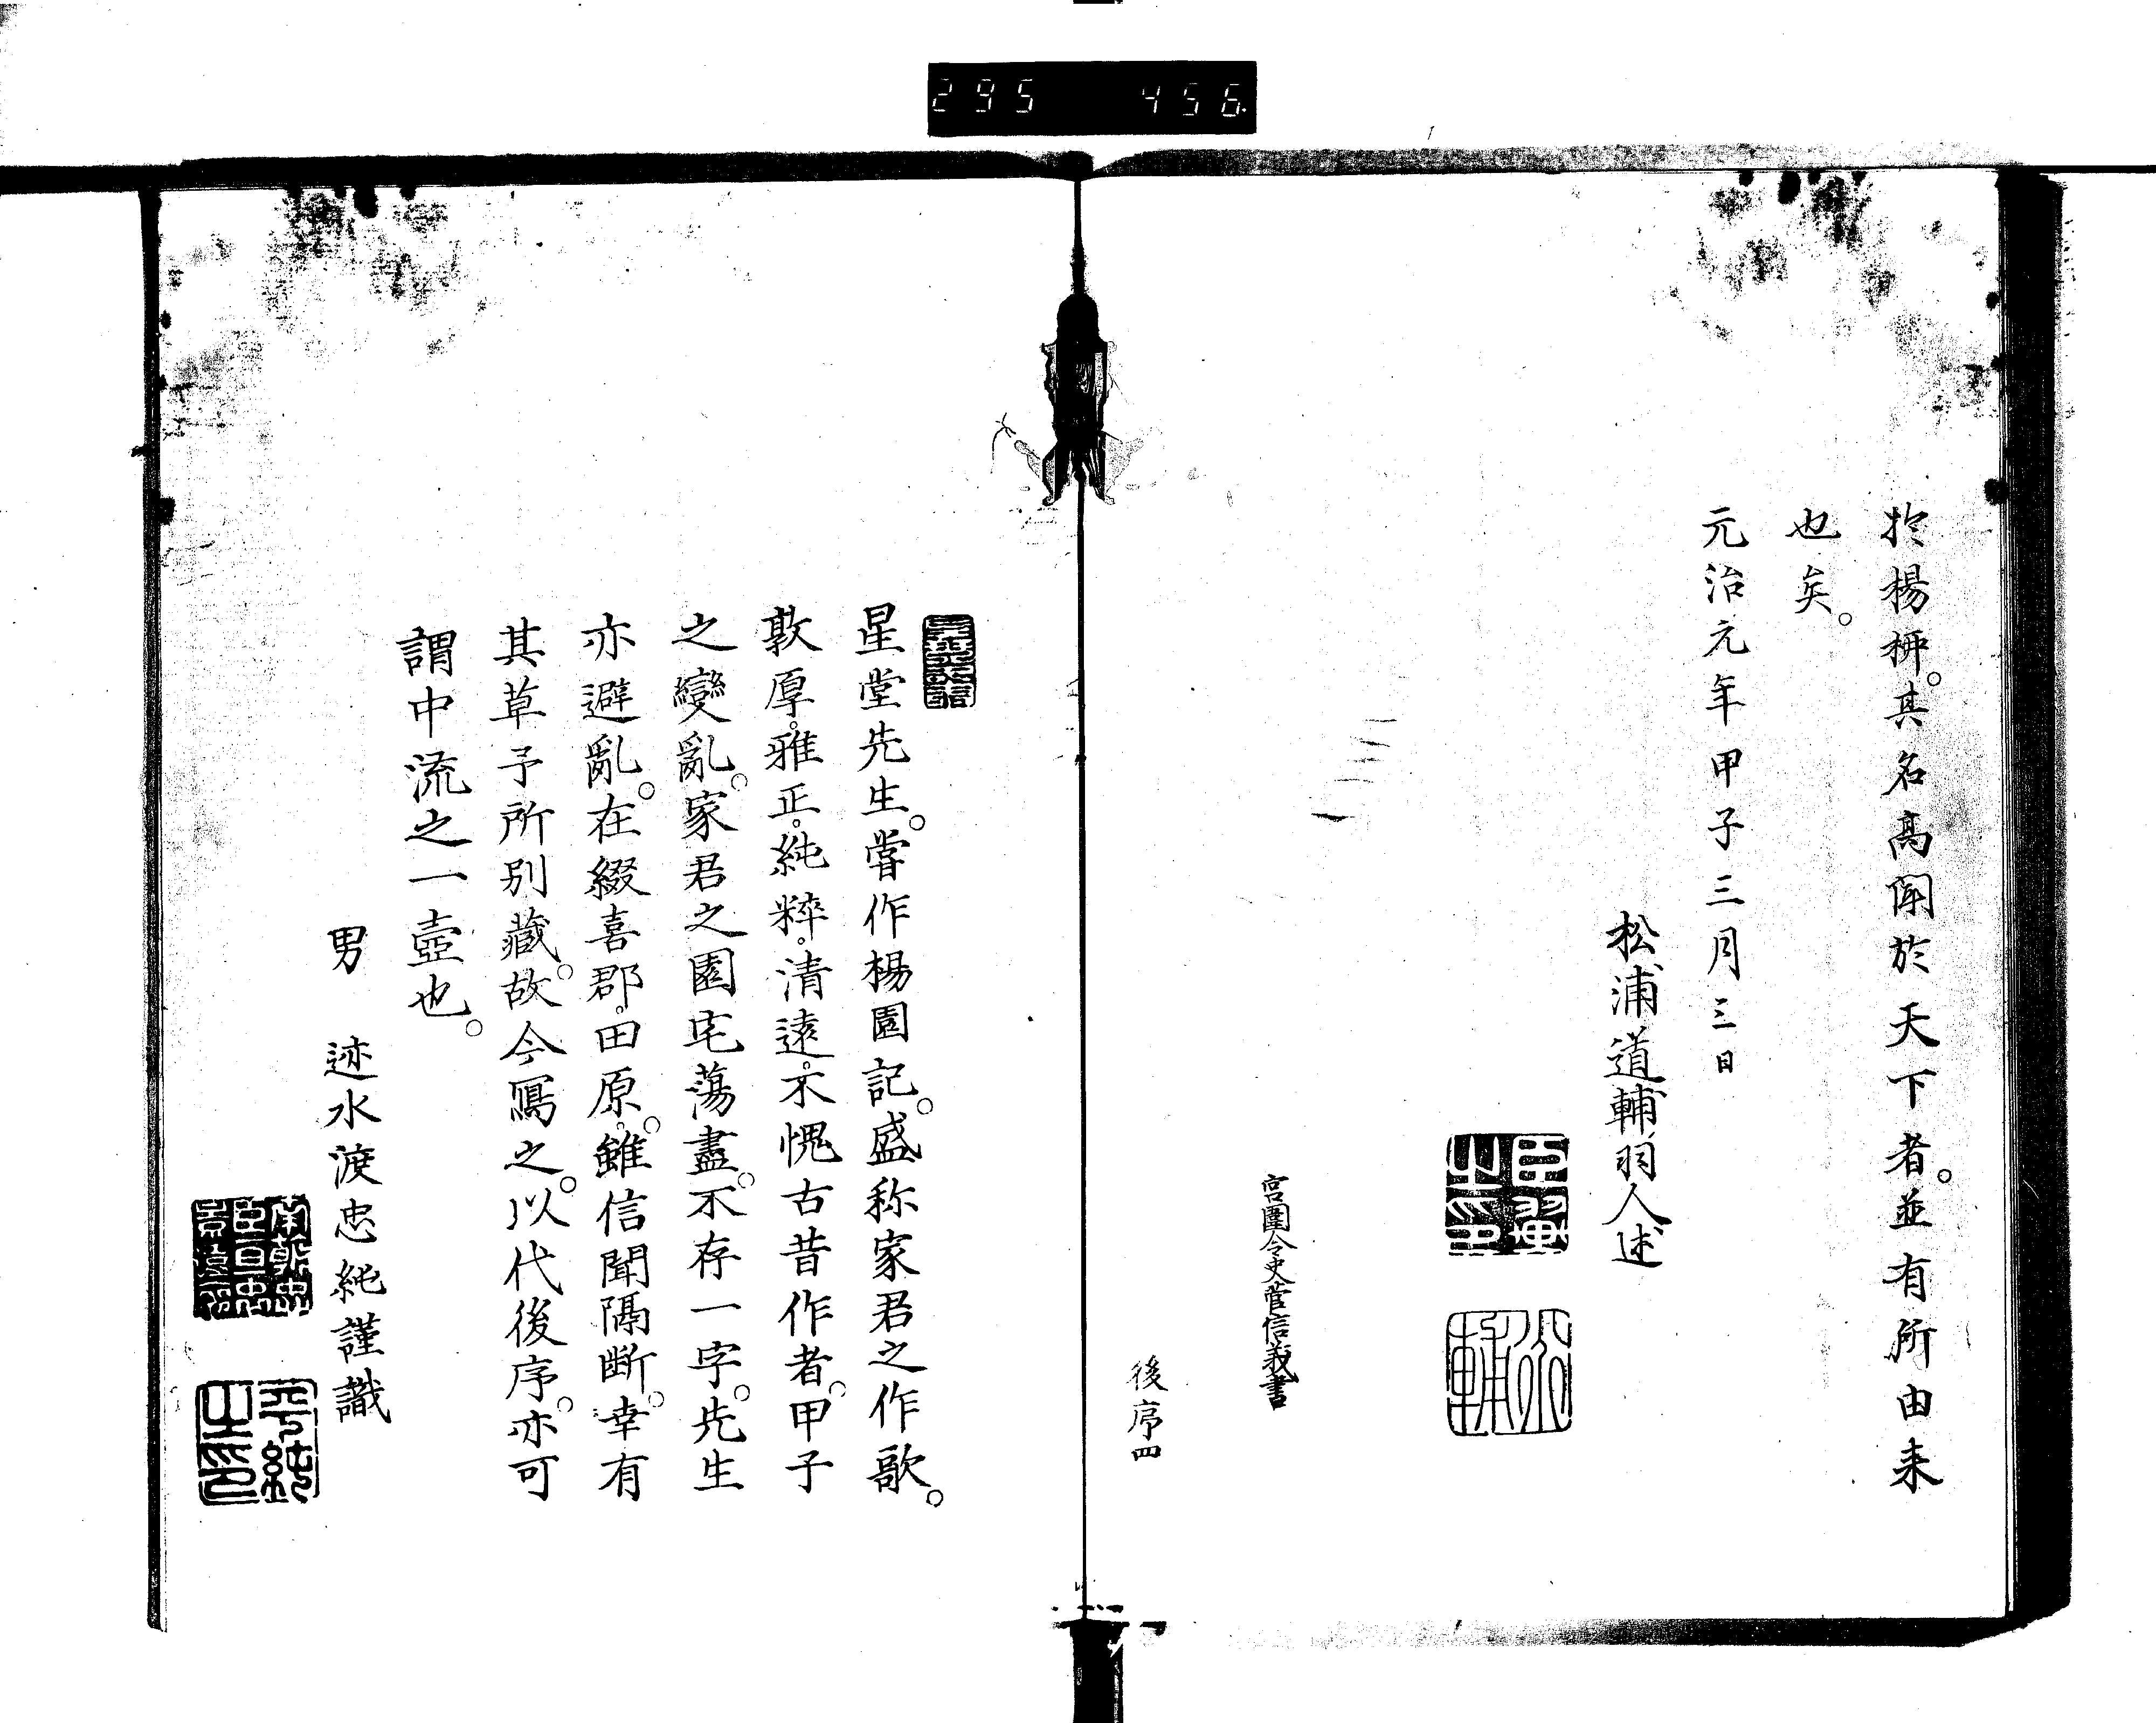 295 456
於楊柳。其名高聞於天下者。並有所由来
也矣。
元治元年甲子三月三日
松浦道輔羽人述
宮圍令史菅信義書
後序四
星堂先生。嘗作楊園記。盛称家君之作歌。
敦厚。雅正。純粹。清遠。不愧古昔作者。甲子
之變亂。家君之園宅蕩盡。不存一字。先生
亦避亂。在綴喜郡。田原。雖信聞隔斷。幸有
其草予所別藏。故今寫之。以代後序。亦可
謂中流之一壺也。
男 迹水渡忠純謹識